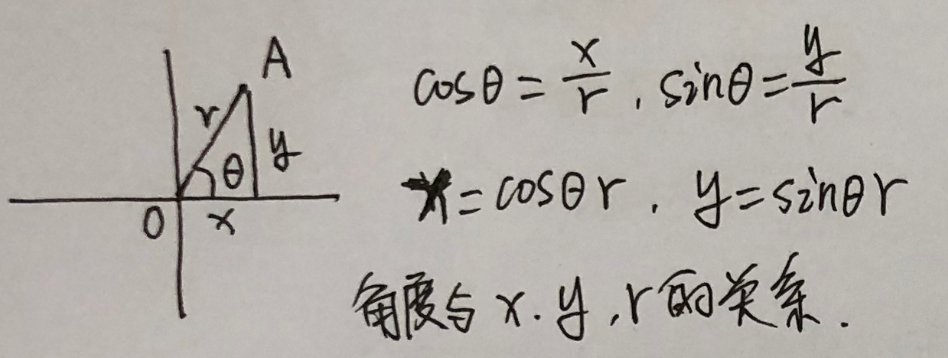 A
r
y
θ
O
x
cosθ = x/r , sinθ = y/r
x = cosθ r . y = sinθ r
角度与 x . y , r 的关系 .